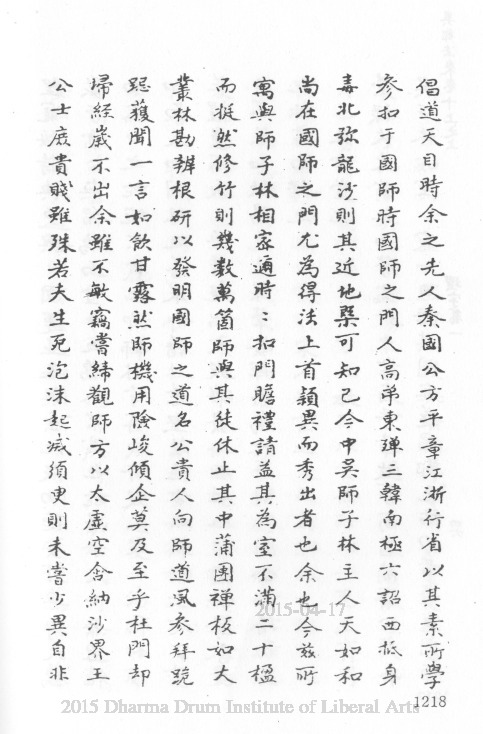 倡道天目時余之先人秦國公方平章江浙行省以其素所學
參扣于國師時國師之門人高弟東殫三韓南極六詔西抵身
毒北弥龍沙則其近地槩可知已今中吳師子林主人天如和
尚在國師之門尤為得法上首穎異而秀出者也余也今茲所
寓與師子林相家邇時〻扣門瞻禮請益其為室不滿二十楹
而挺然修竹則幾數萬箇師與其徒休止其中蒲團禪板如大
叢林勘辨根研以發明國師之道名公貴人向師道風參拜跪
跽獲聞一言如飲甘露然師機用險峻傾企莫及至乎杜門却
掃經歲不出余雖不敏竊嘗締觀師方以太虛空含納沙界王
公士庶貴賤雖殊若夫生死泡沫起滅須臾則未嘗少異自非
1218
2015-04-17
2015 Dharma Drum Institute of Liberal Arts